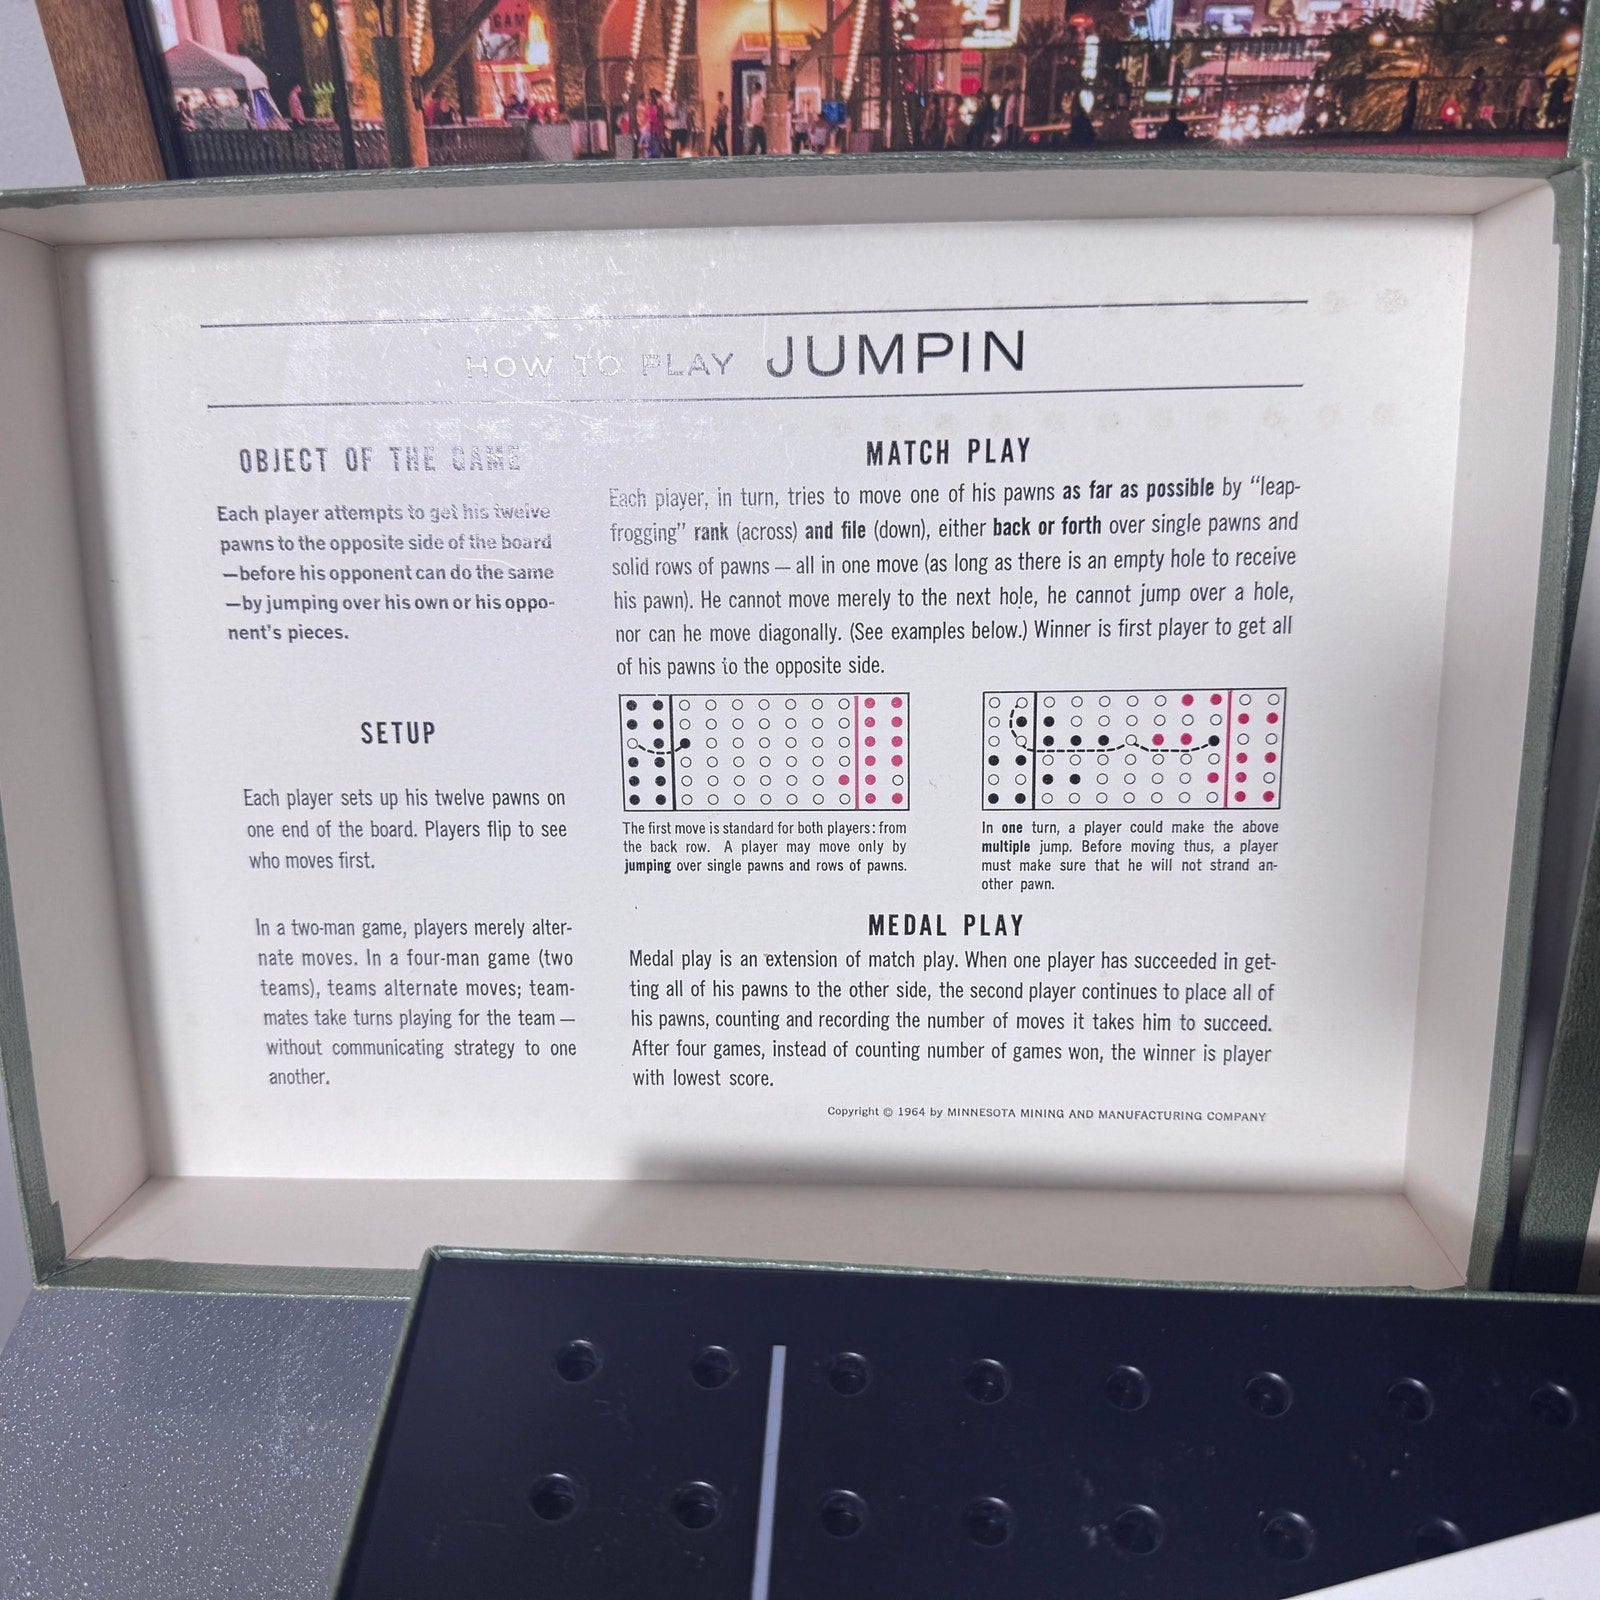 GAM
HOW TO PLAY JUMPIN
OBJECT OF THE GAME
Each player attempts to get his twelve
pawns to the opposite side of the board
—before his opponent can do the same
—by jumping over his own or his oppo-
nent's pieces.
SETUP
Each player sets up his twelve pawns on
one end of the board. Players flip to see
who moves first.
In a two-man game, players merely alter-
nate moves. In a four-man game (two
teams), teams alternate moves; team-
mates take turns playing for the team —
without communicating strategy to one
another.
MATCH PLAY
Each player, in turn, tries to move one of his pawns as far as possible by “leap-
frogging” rank (across) and file (down), either back or forth over single pawns and
solid rows of pawns — all in one move (as long as there is an empty hole to receive
his pawn). He cannot move merely to the next hole, he cannot jump over a hole,
nor can he move diagonally. (See examples below.) Winner is first player to get all
of his pawns to the opposite side.
The first move is standard for both players: from
the back row. A player may move only by
jumping over single pawns and rows of pawns.
In one turn, a player could make the above
multiple jump. Before moving thus, a player
must make sure that he will not strand an-
other pawn.
MEDAL PLAY
Medal play is an extension of match play. When one player has succeeded in get-
ting all of his pawns to the other side, the second player continues to place all of
his pawns, counting and recording the number of moves it takes him to succeed.
After four games, instead of counting number of games won, the winner is player
with lowest score.
Copyright © 1964 by MINNESOTA MINING AND MANUFACTURING COMPANY